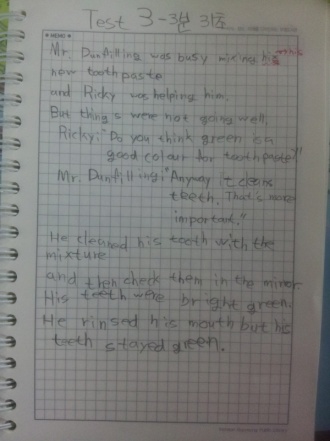 Test 3 - 3분 31초
MEMO
Mr. Dunfilling was busy mixing his
new toothpaste
and Ricky was helping him.
But things were not going well.
Ricky: "Do you think green is a
good colour for toothpaste?"
Mr. Dunfilling: "Anyway it cleans
teeth. That's more
important."
He cleaned his tooth with the
mixture
and then check them in the mirror.
His teeth were bright green.
He rinsed his mouth but his
teeth stayed green.